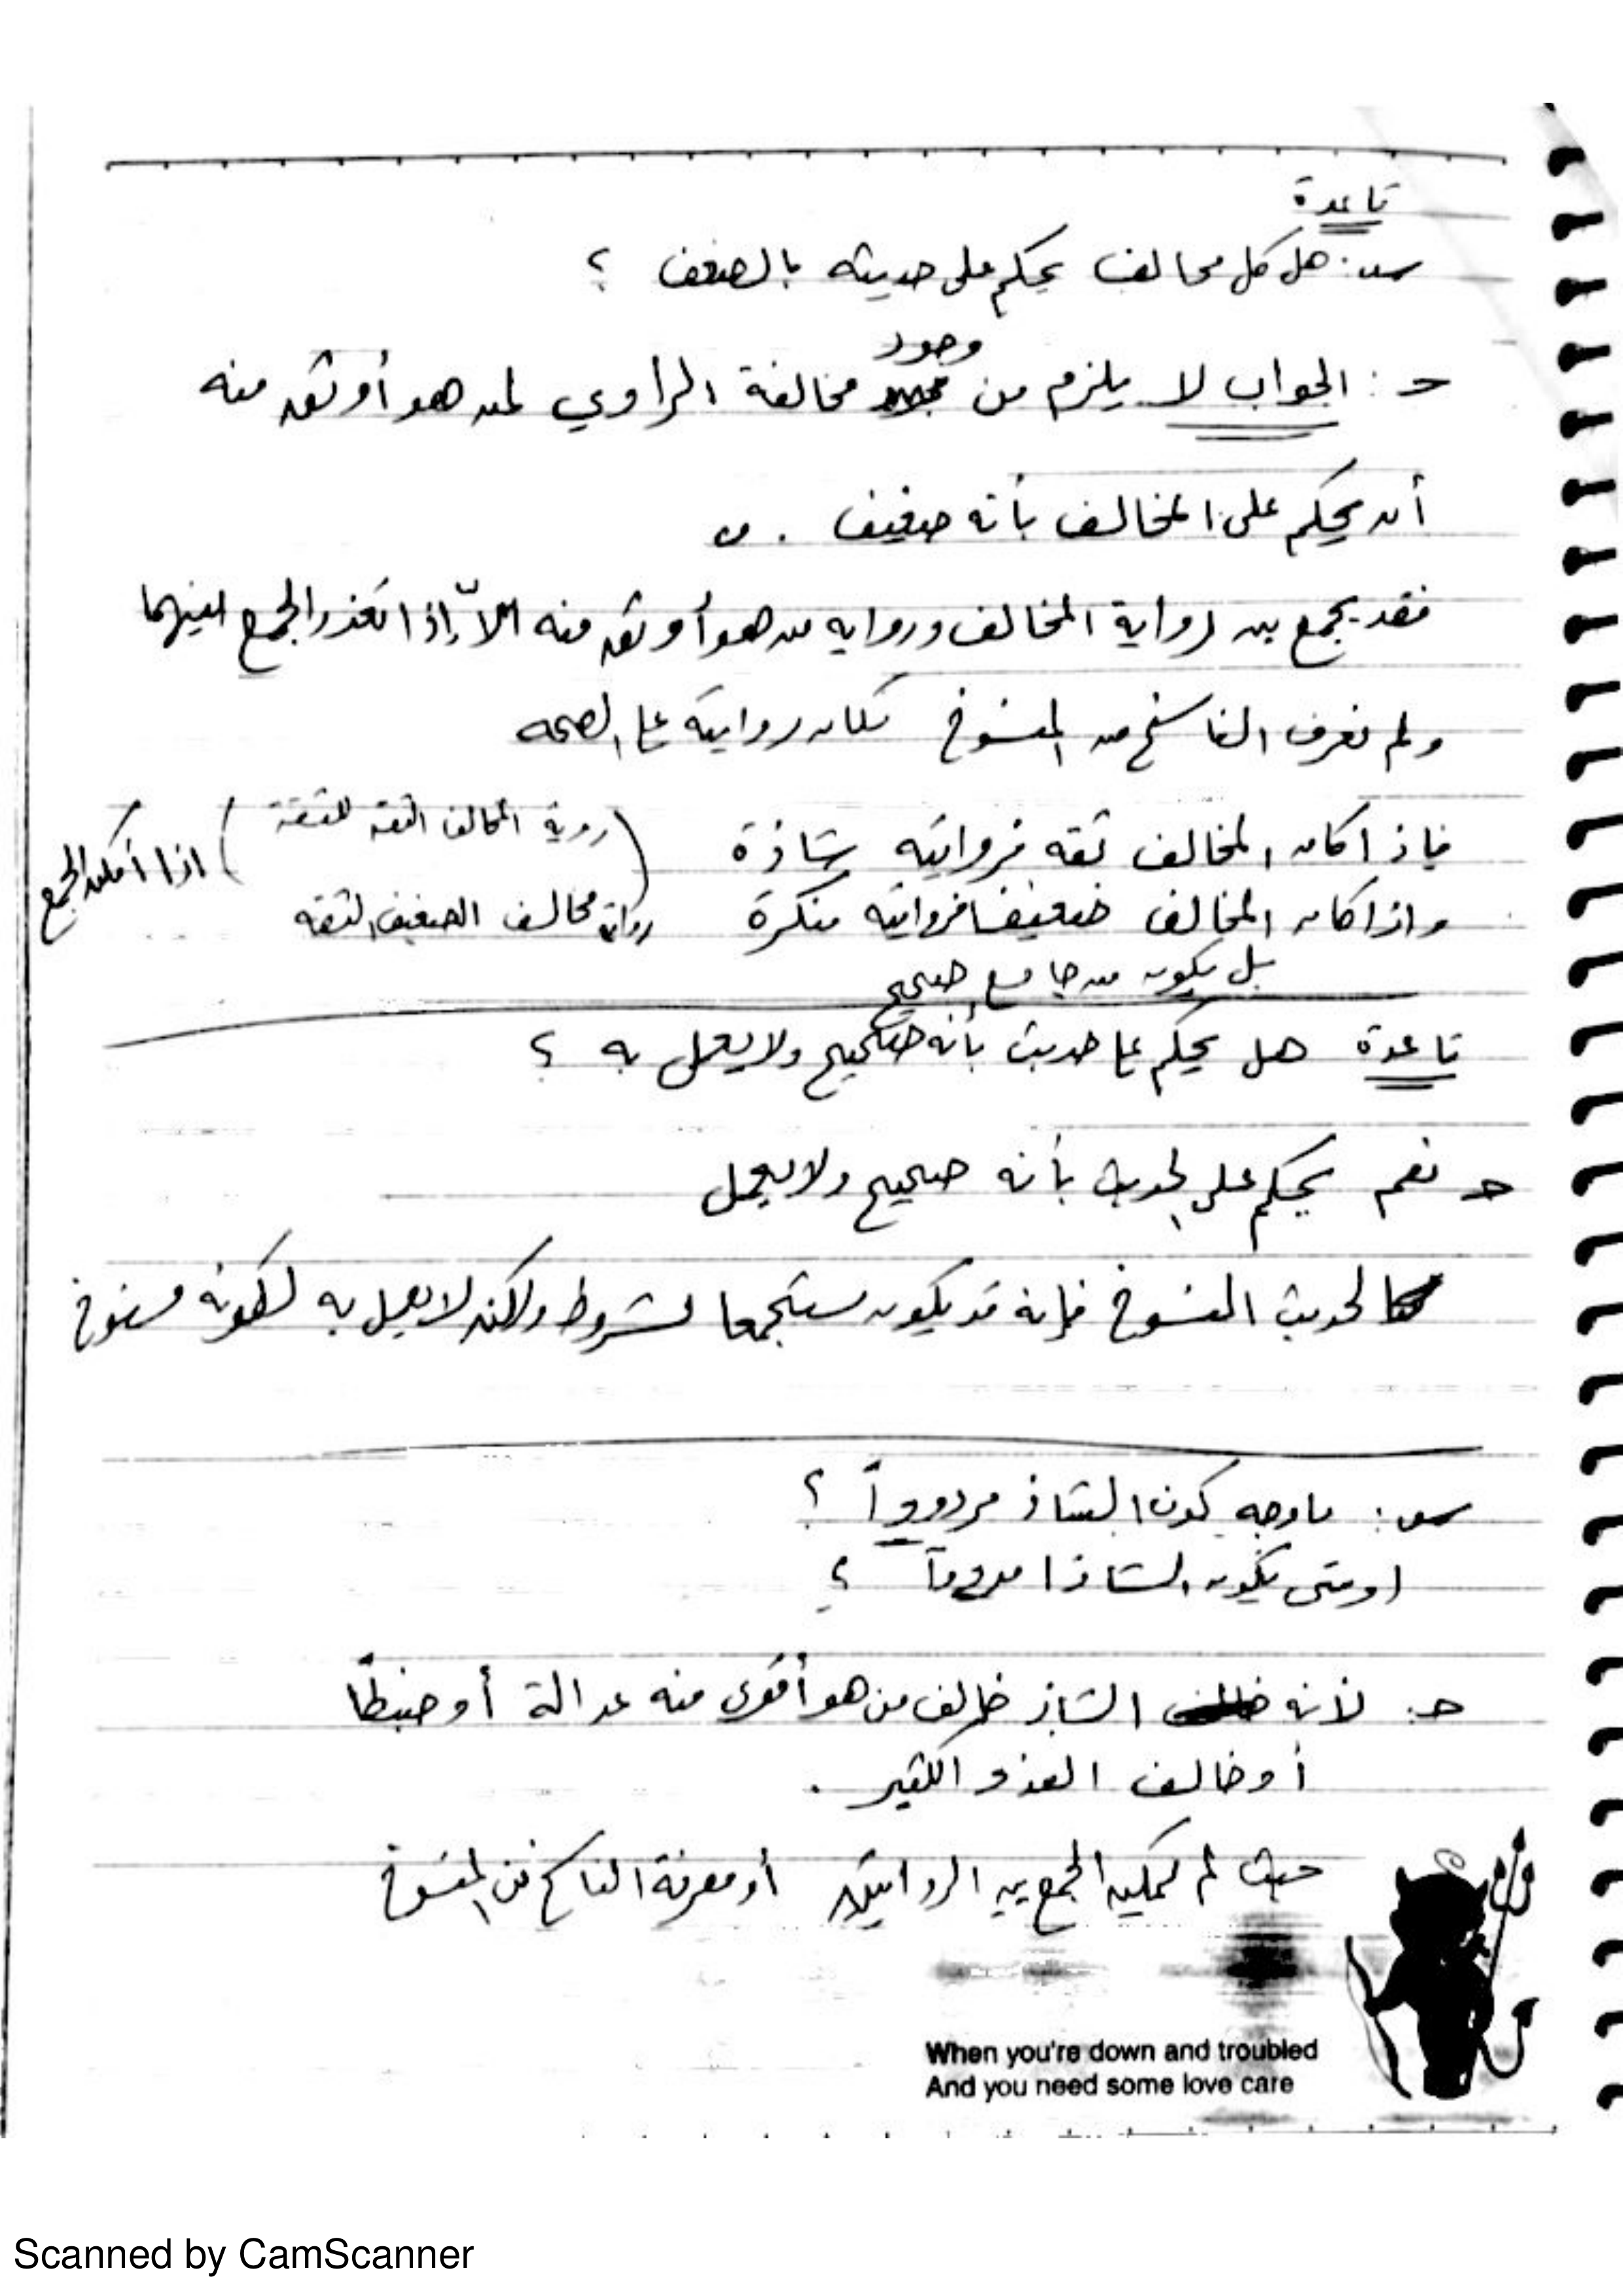 قاعدة
س: هل كل مخالف يحكم على حديثه بالضعف ؟
وجود
ج : الجواب لا يلزم من مخالفة الراوي لمن هو أوثق منه
أن يحكم على المخالف بأنه ضعيف .
فقد يجمع بين رواية المخالف ورواية من هو أوثق منه إلا إذا تعذر الجمع بينهما
ولم نعرف الناسخ من المنسوخ فكان روايته على الصحه
فإذا كان المخالف ثقه فروايته شاذة (روية المخالف الثقه للثقة) اذا أمكن الجمع
واذا كان المخالف ضعيفا فروايته منكرة رواية مخالف الضعيف لثقه
بل يكون من جامع صحيح
قاعدة هل يحكم على حديث بأنه صحيح ولا يعمل به ؟
ج نعم يحكم على الحديث بأنه صحيح ولا يعمل
كالحديث المنسوخ فإنه قد يكون مستجمعا لشروط ولكن لا يعمل به لكونه منسوخ
س : ماوجه كون الشاذ مردوداً ؟
اومتى يكون الشاذا مردوداً ؟
ج: لأنه الشاذ خالف من هو أقوى منه عدالة أو ضبطاً
أو خالف العدد الكثير .
حيث لم يمكن الجمع بين الروايتين أو معرفة الناسخ من المنسوخ
When you're down and troubled
And you need some love care
Scanned by CamScanner